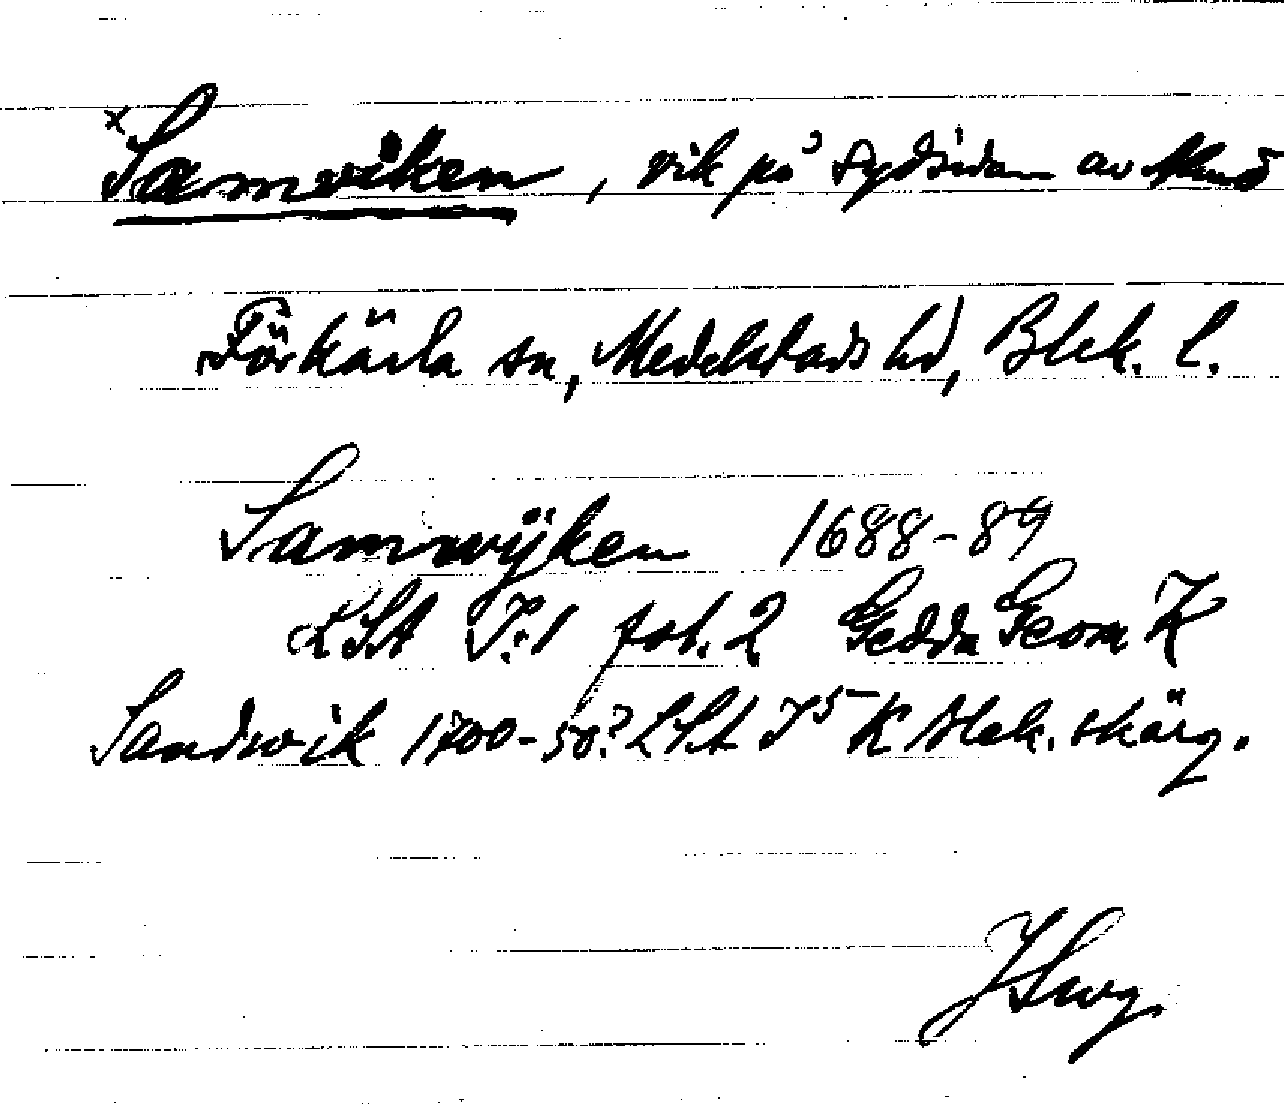 x Samviken, vik på sydsidan av Almö
Förkärla sn, Medelstads hd, Blek. l.
Samwijken 1688-89
LSA J:1 fol. 2 Gedda Geom K
Sandwik 1700-50? LSA J5 K Blek. skärg.